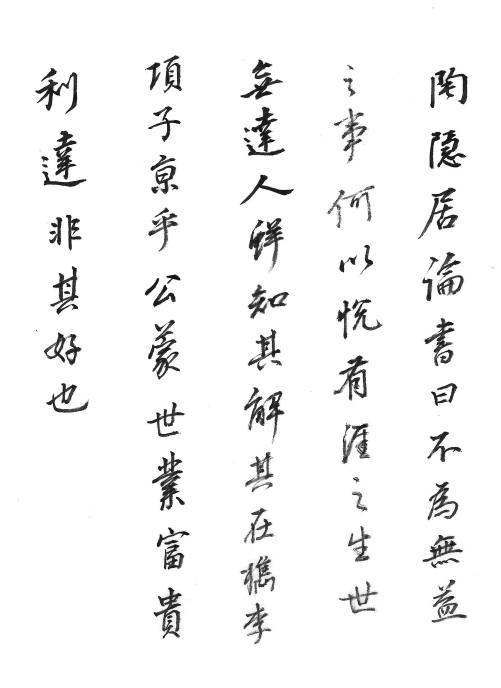 陶隱居論書曰不為無益
之事何以悅有涯之生世
無達人鮮知其解其在檇李
項子京乎公蒙世業富貴
利達非其好也